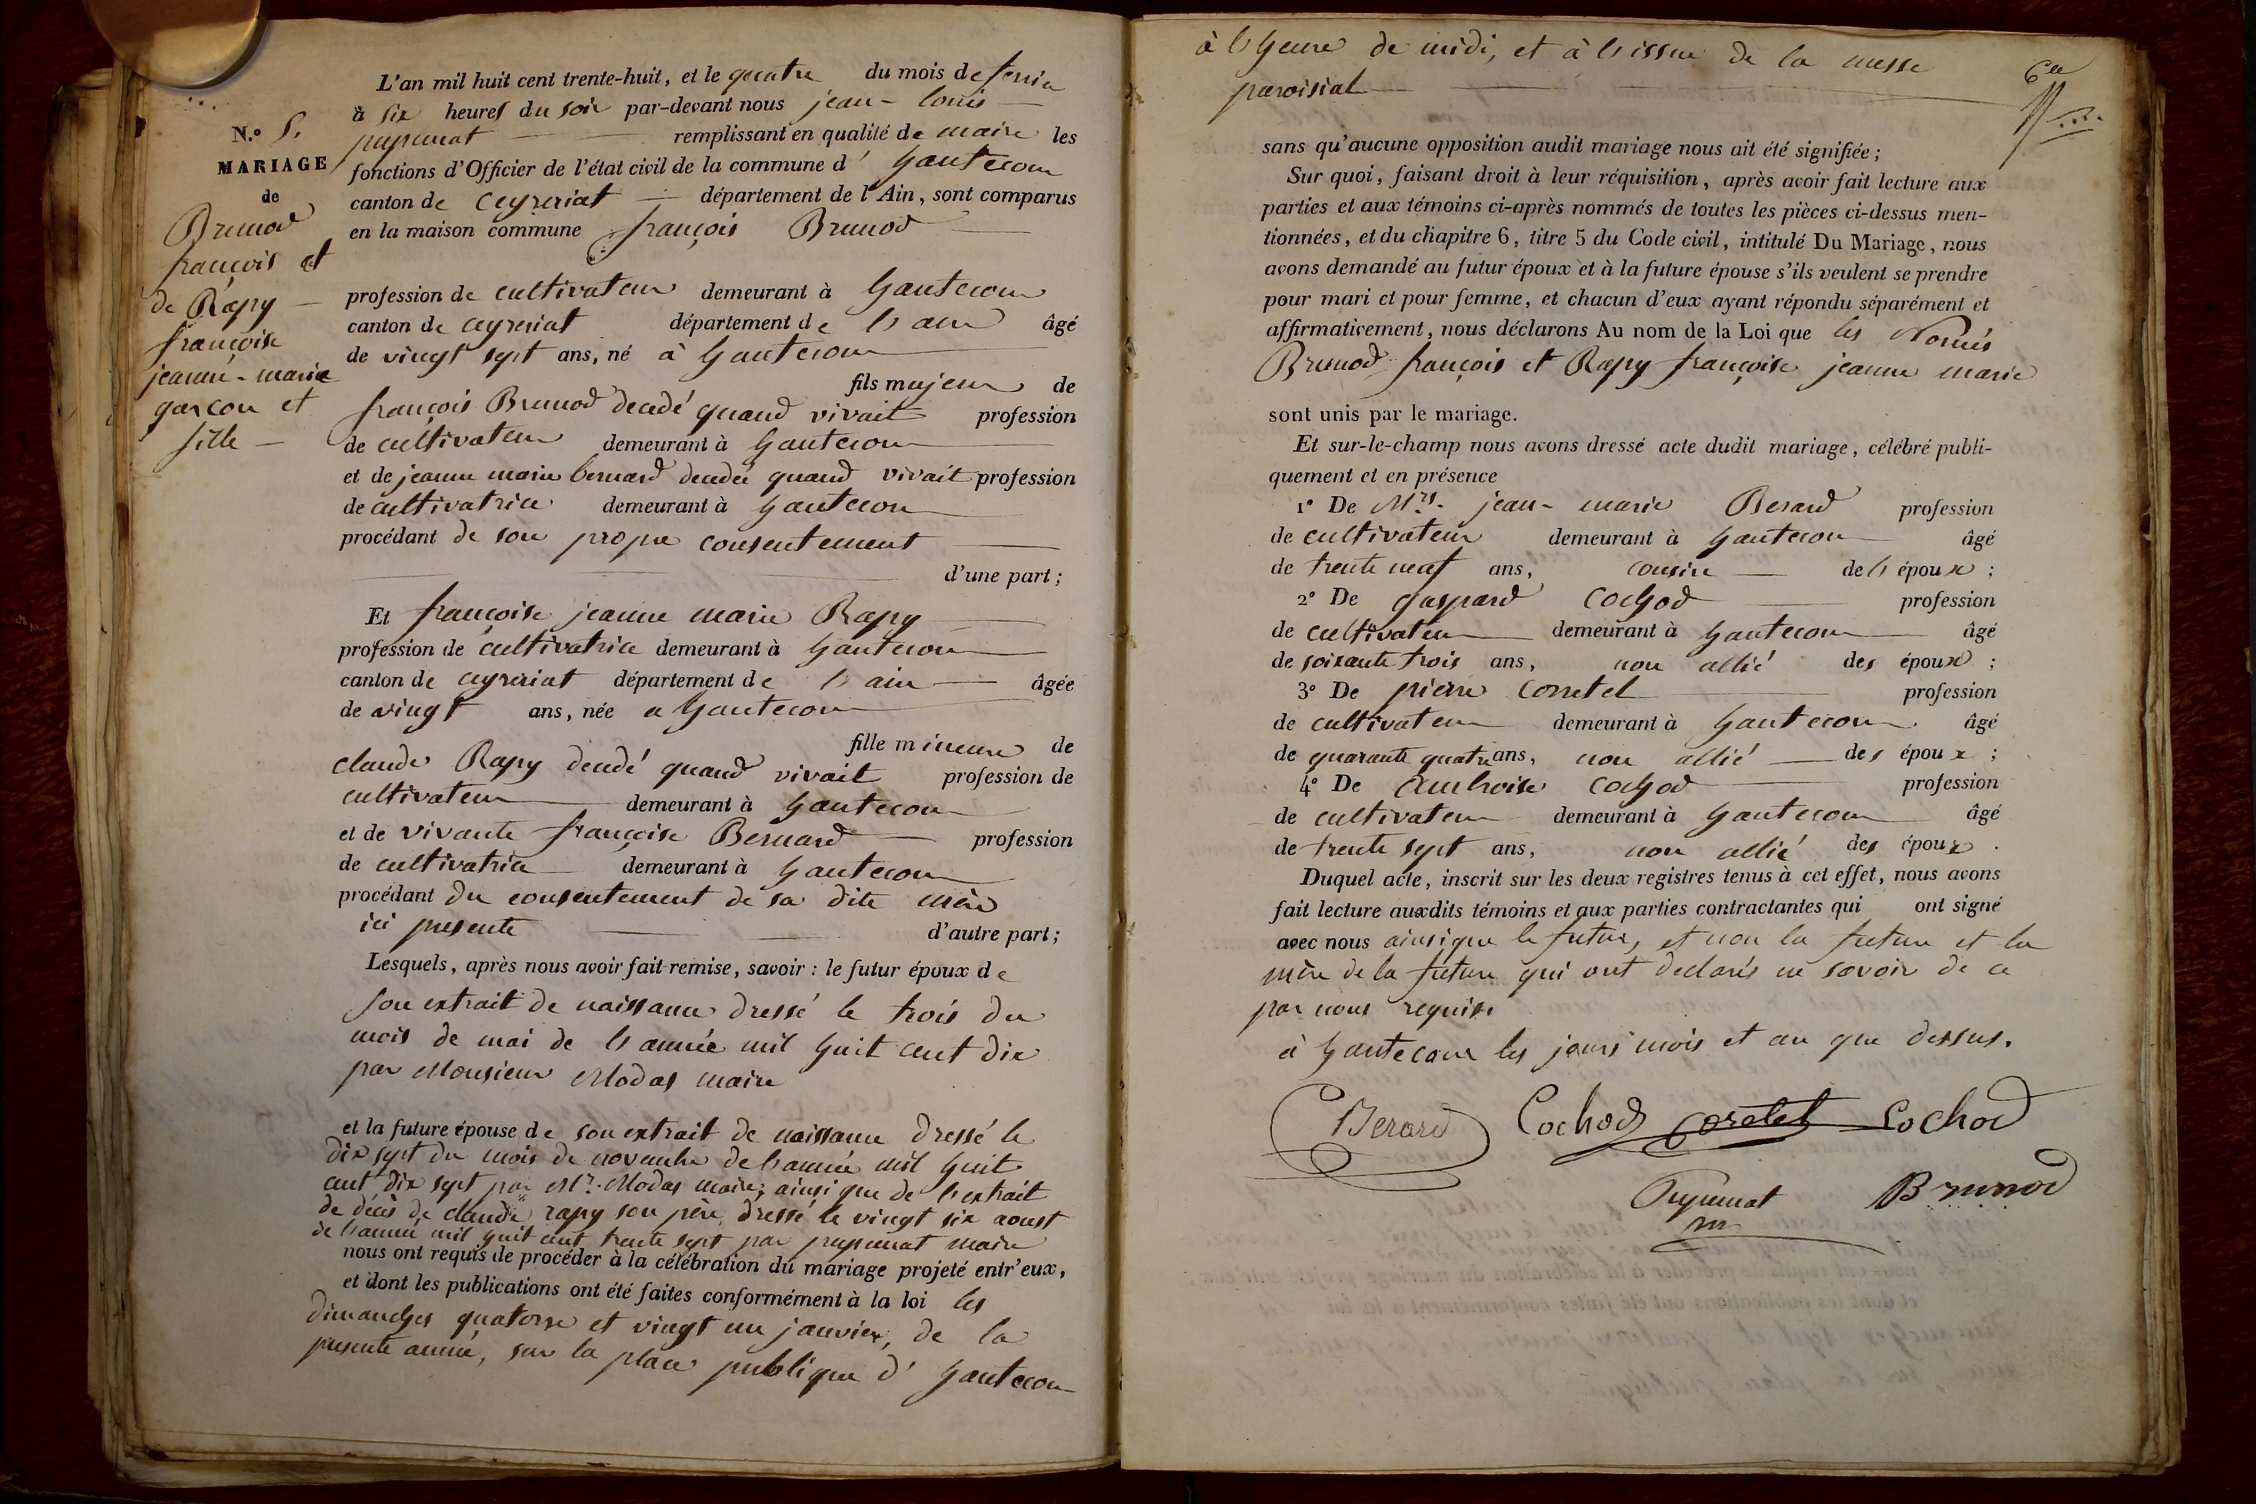 N.º 5.
MARIAGE
de
Brunod
françois et
de Rapy
françoise
jeanne-marie
garcon et
fille
L'an mil huit cent trente-huit, et le quatre du mois de
à six heures du soir par-devant nous jean-louis
remplissant en qualité de maire les
fonctions d'Officier de l'état civil de la commune d' hautecour
canton de ceyzeriat département de l'Ain, sont comparus
en la maison commune françois Brunod
profession de cultivateur demeurant à hautecour
canton de ceyzeriat département de l'ain âgé
de vingt sept ans, né à hautecour
fils majeur de
françois Brunod decedé quand vivait profession
de cultivateur demeurant à hautecour
et de jeanne marie bernard decedée quand vivait profession
de cultivatrice demeurant à hautecour
procédant de son propre consentement
d'une part;
Et françoise jeanne marie Rapy
profession de cultivatrice demeurant à hautecour
canton de ceyzeriat département de l'ain âgée
de vingt ans, née a hautecour
fille mineure de
claude Rapy decedé quand vivait profession de
cultivateur demeurant à hautecour
et de vivante françoise Bernard profession
de cultivatrice demeurant à hautecour
procédant du consentement de sa dite mère
ici presente d'autre part;
Lesquels, après nous avoir fait remise, savoir: le futur époux de
son extrait de naissance dressé le trois du
mois de mai de l'année mil huit cent dix
par Monsieur Modas maire
et la future épouse de son extrait de naissance dressé le
dix sept du mois de novembre de l'année mil huit
cent dix sept par Mr. Modas maire; ainsi que de l'extrait
de décès de claude rapy son père, dressé le vingt six aoust
de l'année mil huit cent trente sept par maire
nous ont requis de procéder à la célébration du mariage projeté entr'eux,
et dont les publications ont été faites conformément à la loi les
dimanches quatorze et vingt un janvier, de la
presente année, sur la place publique d' hautecour
à l'heure de midi, et à l'issue de la messe
paroisial
sans qu'aucune opposition audit mariage nous ait été signifiée;
Sur quoi, faisant droit à leur réquisition, après avoir fait lecture aux
parties et aux témoins ci-après nommés de toutes les pièces ci-dessus men-
tionnées, et du chapitre 6, titre 5 du Code civil, intitulé Du Mariage, nous
avons demandé au futur époux et à la future épouse s'ils veulent se prendre
pour mari et pour femme, et chacun d'eux ayant répondu séparément et
affirmativement, nous déclarons Au nom de la Loi que les Només
Brunod françois et Rapy françoise jeanne marie
sont unis par le mariage.
Et sur-le-champ nous avons dressé acte dudit mariage, célébré publi-
quement et en présence
1º De Mrs. jean-marie Berard profession
de cultivateur demeurant à hautecour âgé
de trente neuf ans, cousin de l'époux;
2º De gaspard Cochod profession
de cultivateur demeurant à hautecour âgé
de soixante trois ans, non allié des époux;
3º De pierre Corretel profession
de cultivateur demeurant à hautecour âgé
de quarante quatre ans, non allié des époux;
4º De Ambroise Cochod profession
de cultivateur demeurant à hautecour âgé
de trente sept ans, non allié des époux.
Duquel acte, inscrit sur les deux registres tenus à cet effet, nous avons
fait lecture auxdits témoins et aux parties contractantes qui ont signé
avec nous ainsi que le futur, et non la future et la
mère de la future qui ont declarés ne savoir de ce
par nous requise
à hautecour les jours mois et an que dessus.
Berard Cochod Coretel Cochod
Brunod